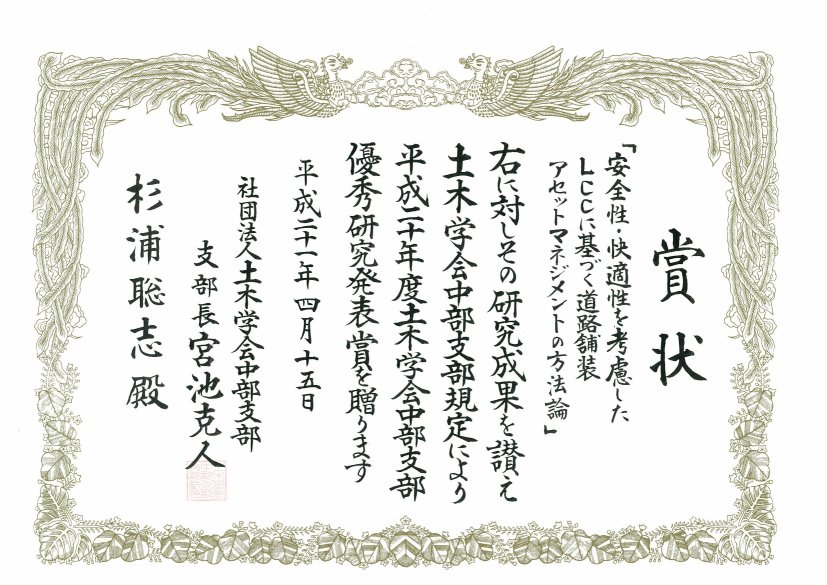 賞状
「安全性・快適性を考慮した
LCCに基づく道路舗装
アセットマネジメントの方法論」
右に対しその研究成果を讃え
土木学会中部支部規定により
平成二十年度土木学会中部支部
優秀研究発表賞を贈ります
平成二十一年四月十五日
社団法人土木学会中部支部
支部長宮池克人
杉浦聡志殿